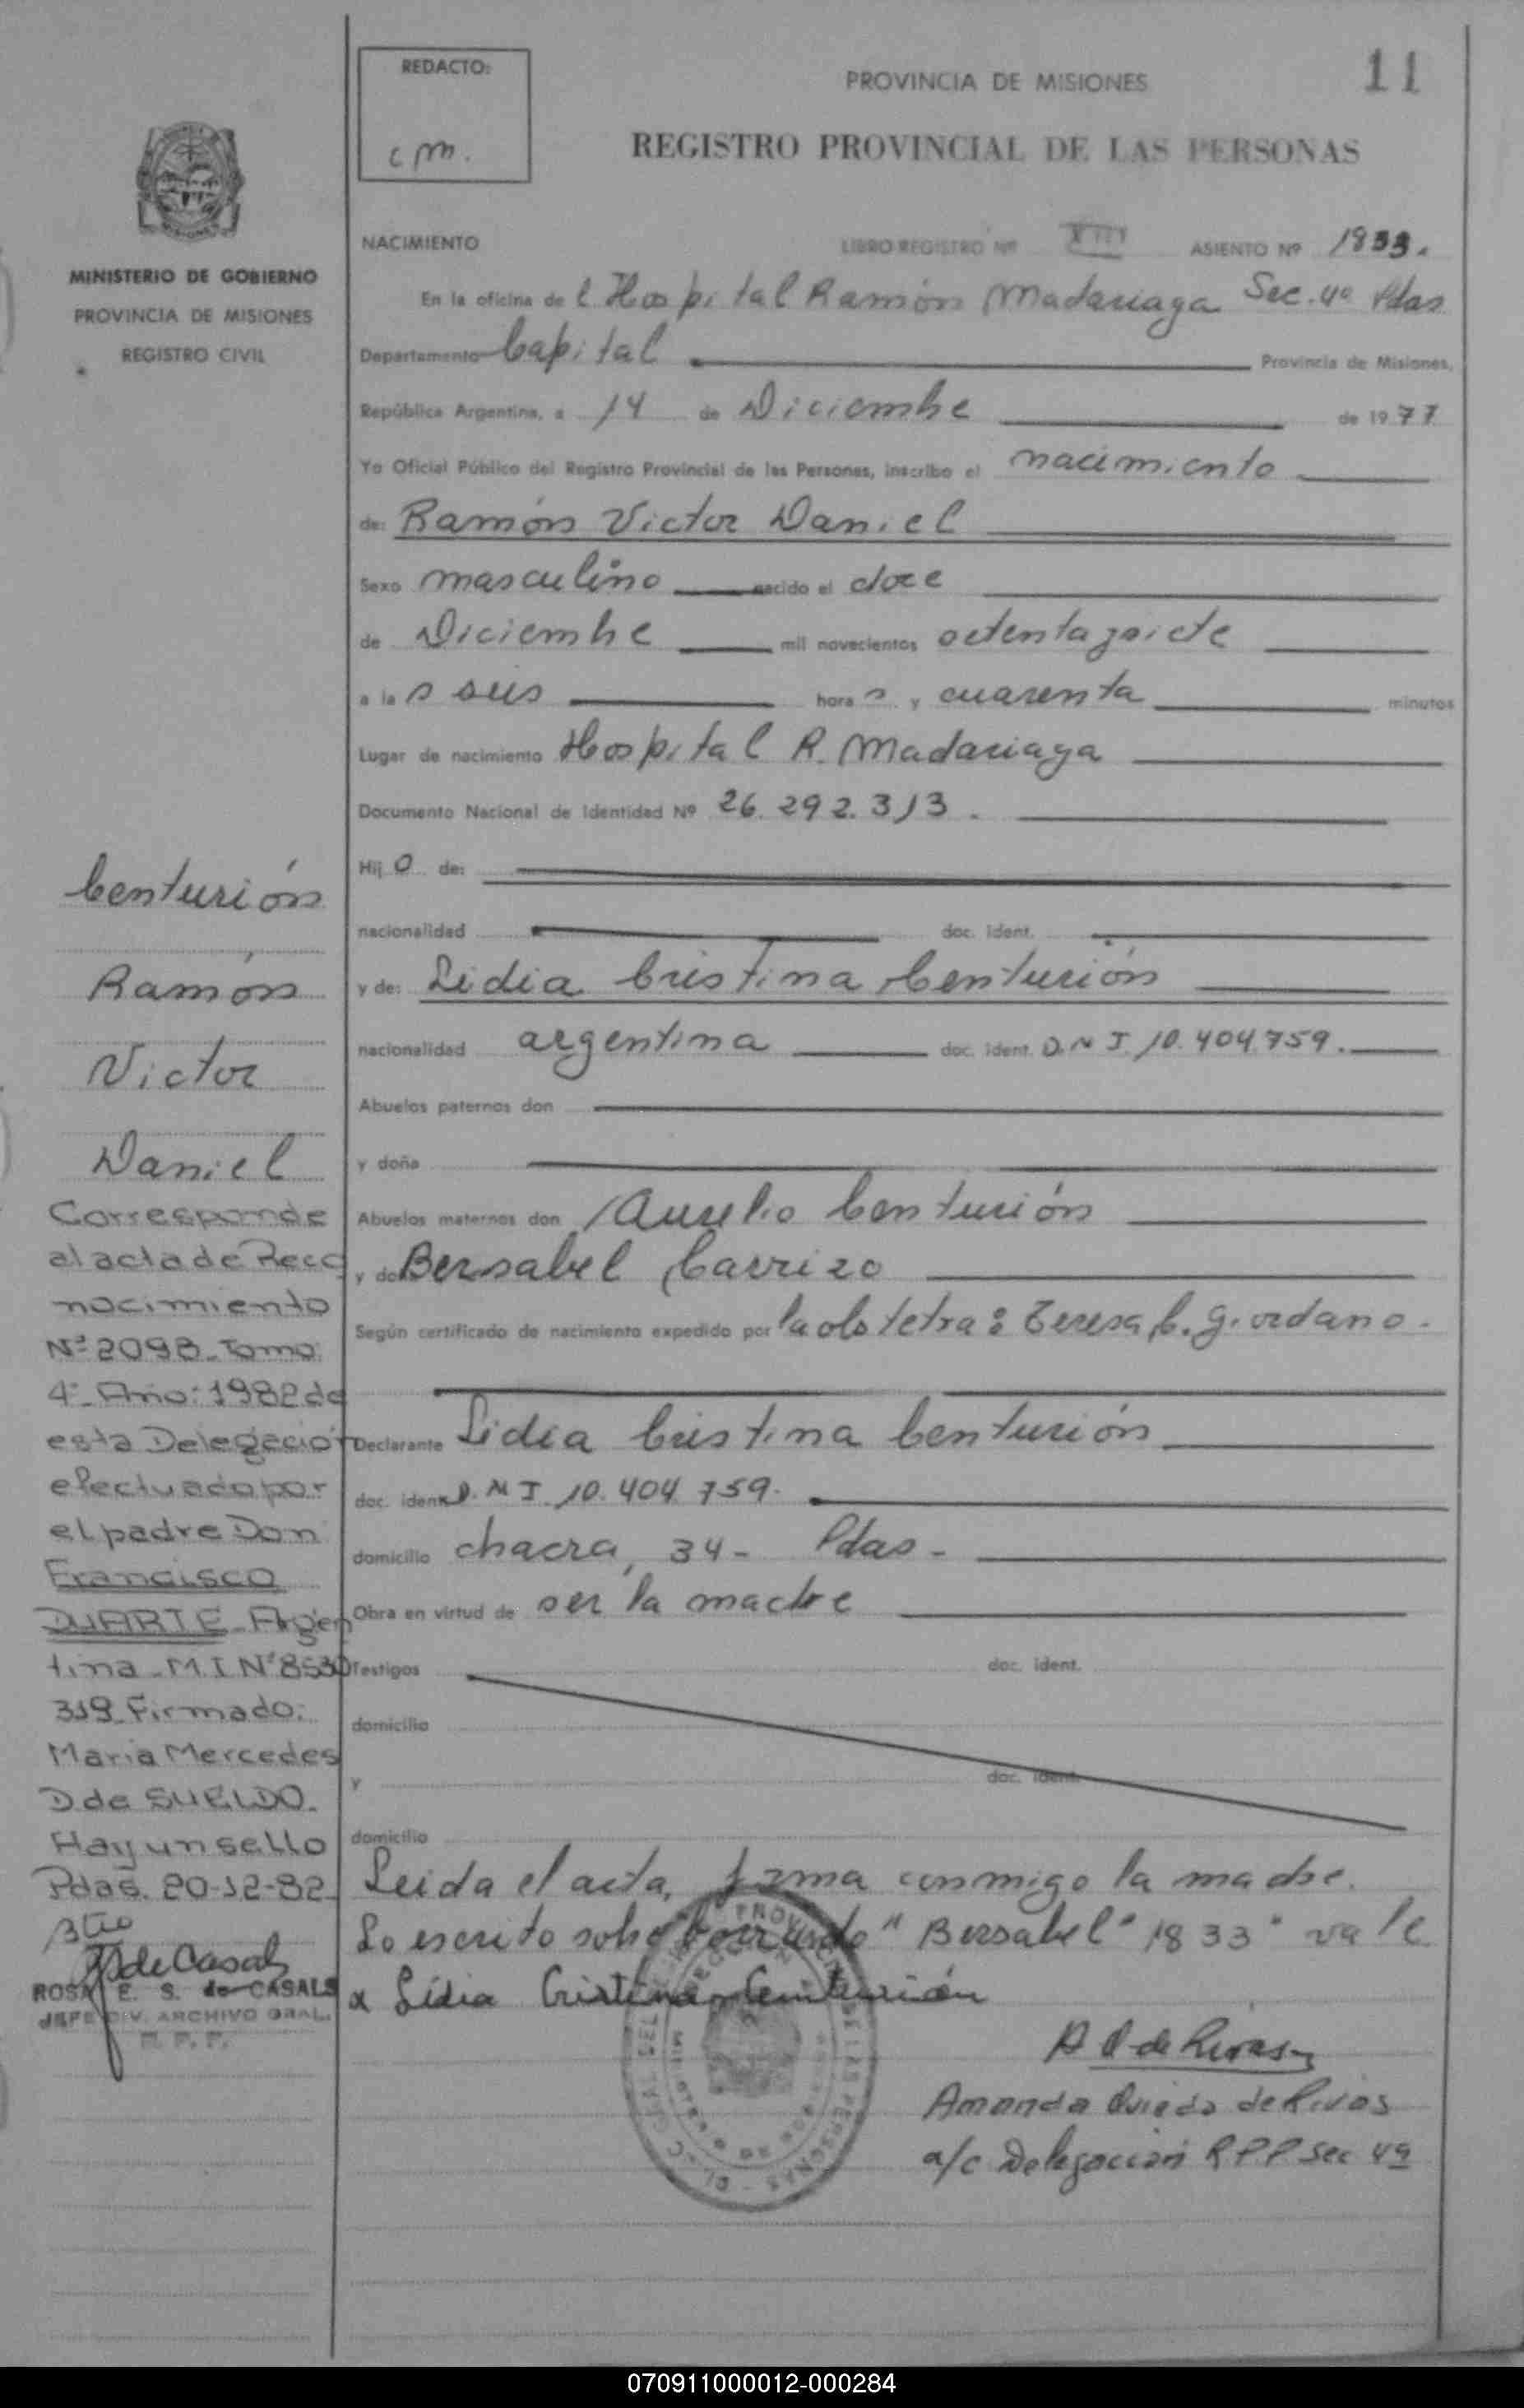 REDACTO:
cm.
PROVINCIA DE MISIONES
11
REGISTRO PROVINCIAL DE LAS PERSONAS
MINISTERIO DE GOBIERNO
PROVINCIA DE MISIONES
REGISTRO CIVIL
NACIMIENTO LIBRO REGISTRO Nº XIII ASIENTO Nº 1833.
En la oficina del Hospital Ramón Madariaga Sec. 4ª Pdas
Departamento Capital Provincia de Misiones,
República Argentina, a 14 de Diciembre de 1977
Yo Oficial Público del Registro Provincial de las Personas, inscribo el nacimiento
de: Ramón Victor Daniel
Sexo masculino nacido el doce
de Diciembre mil novecientos setenta y siete
a las seis horas y cuarenta minutos
Lugar de nacimiento Hospital R. Madariaga
Documento Nacional de Identidad Nº 26.292.313.
Hijo de:
nacionalidad doc. ident.
y de: Lidia Cristina Centurión
nacionalidad argentina doc. ident. D.N.I. 10.404.759.
Abuelos paternos don
y doña
Abuelos maternos don Aurelio Centurión
y do Bersabel Carrizo
Según certificado de nacimiento expedido por la obstetra: Teresa C. Giordano.
Declarante Lidia Cristina Centurión
doc. ident. D.N.I. 10.404.759.
domicilio chacra, 34- Pdas-
Obra en virtud de ser la madre
Testigos doc. ident.
domicilio
y doc. ident.
domicilio
Leida el acta, firma conmigo la madre.
Lo escrito sobre borrado "Bersabel" 1833" vale
x Lidia Cristina Centurión
A O de Rivas
Amanda Oviedo de Rivas
a/c Delegación R.P.P Sec 4ª
Centurión
Ramón
Victor
Daniel
Corresponde
al acta de Reco
nocimiento
Nº 2098 Tomo:
4º Año: 1982 de
esta Delegación
efectuado por
el padre Don
Francisco
DUARTE Argen
tina M.I Nº 8530
319 Firmado:
Maria Mercedes
D de SUELDO.
Hay un sello
Pdas. 20-12-82
de Casals
ROSA E. S. de CASALS
JEFE DIV. ARCHIVO GRAL.
070911000012-000284